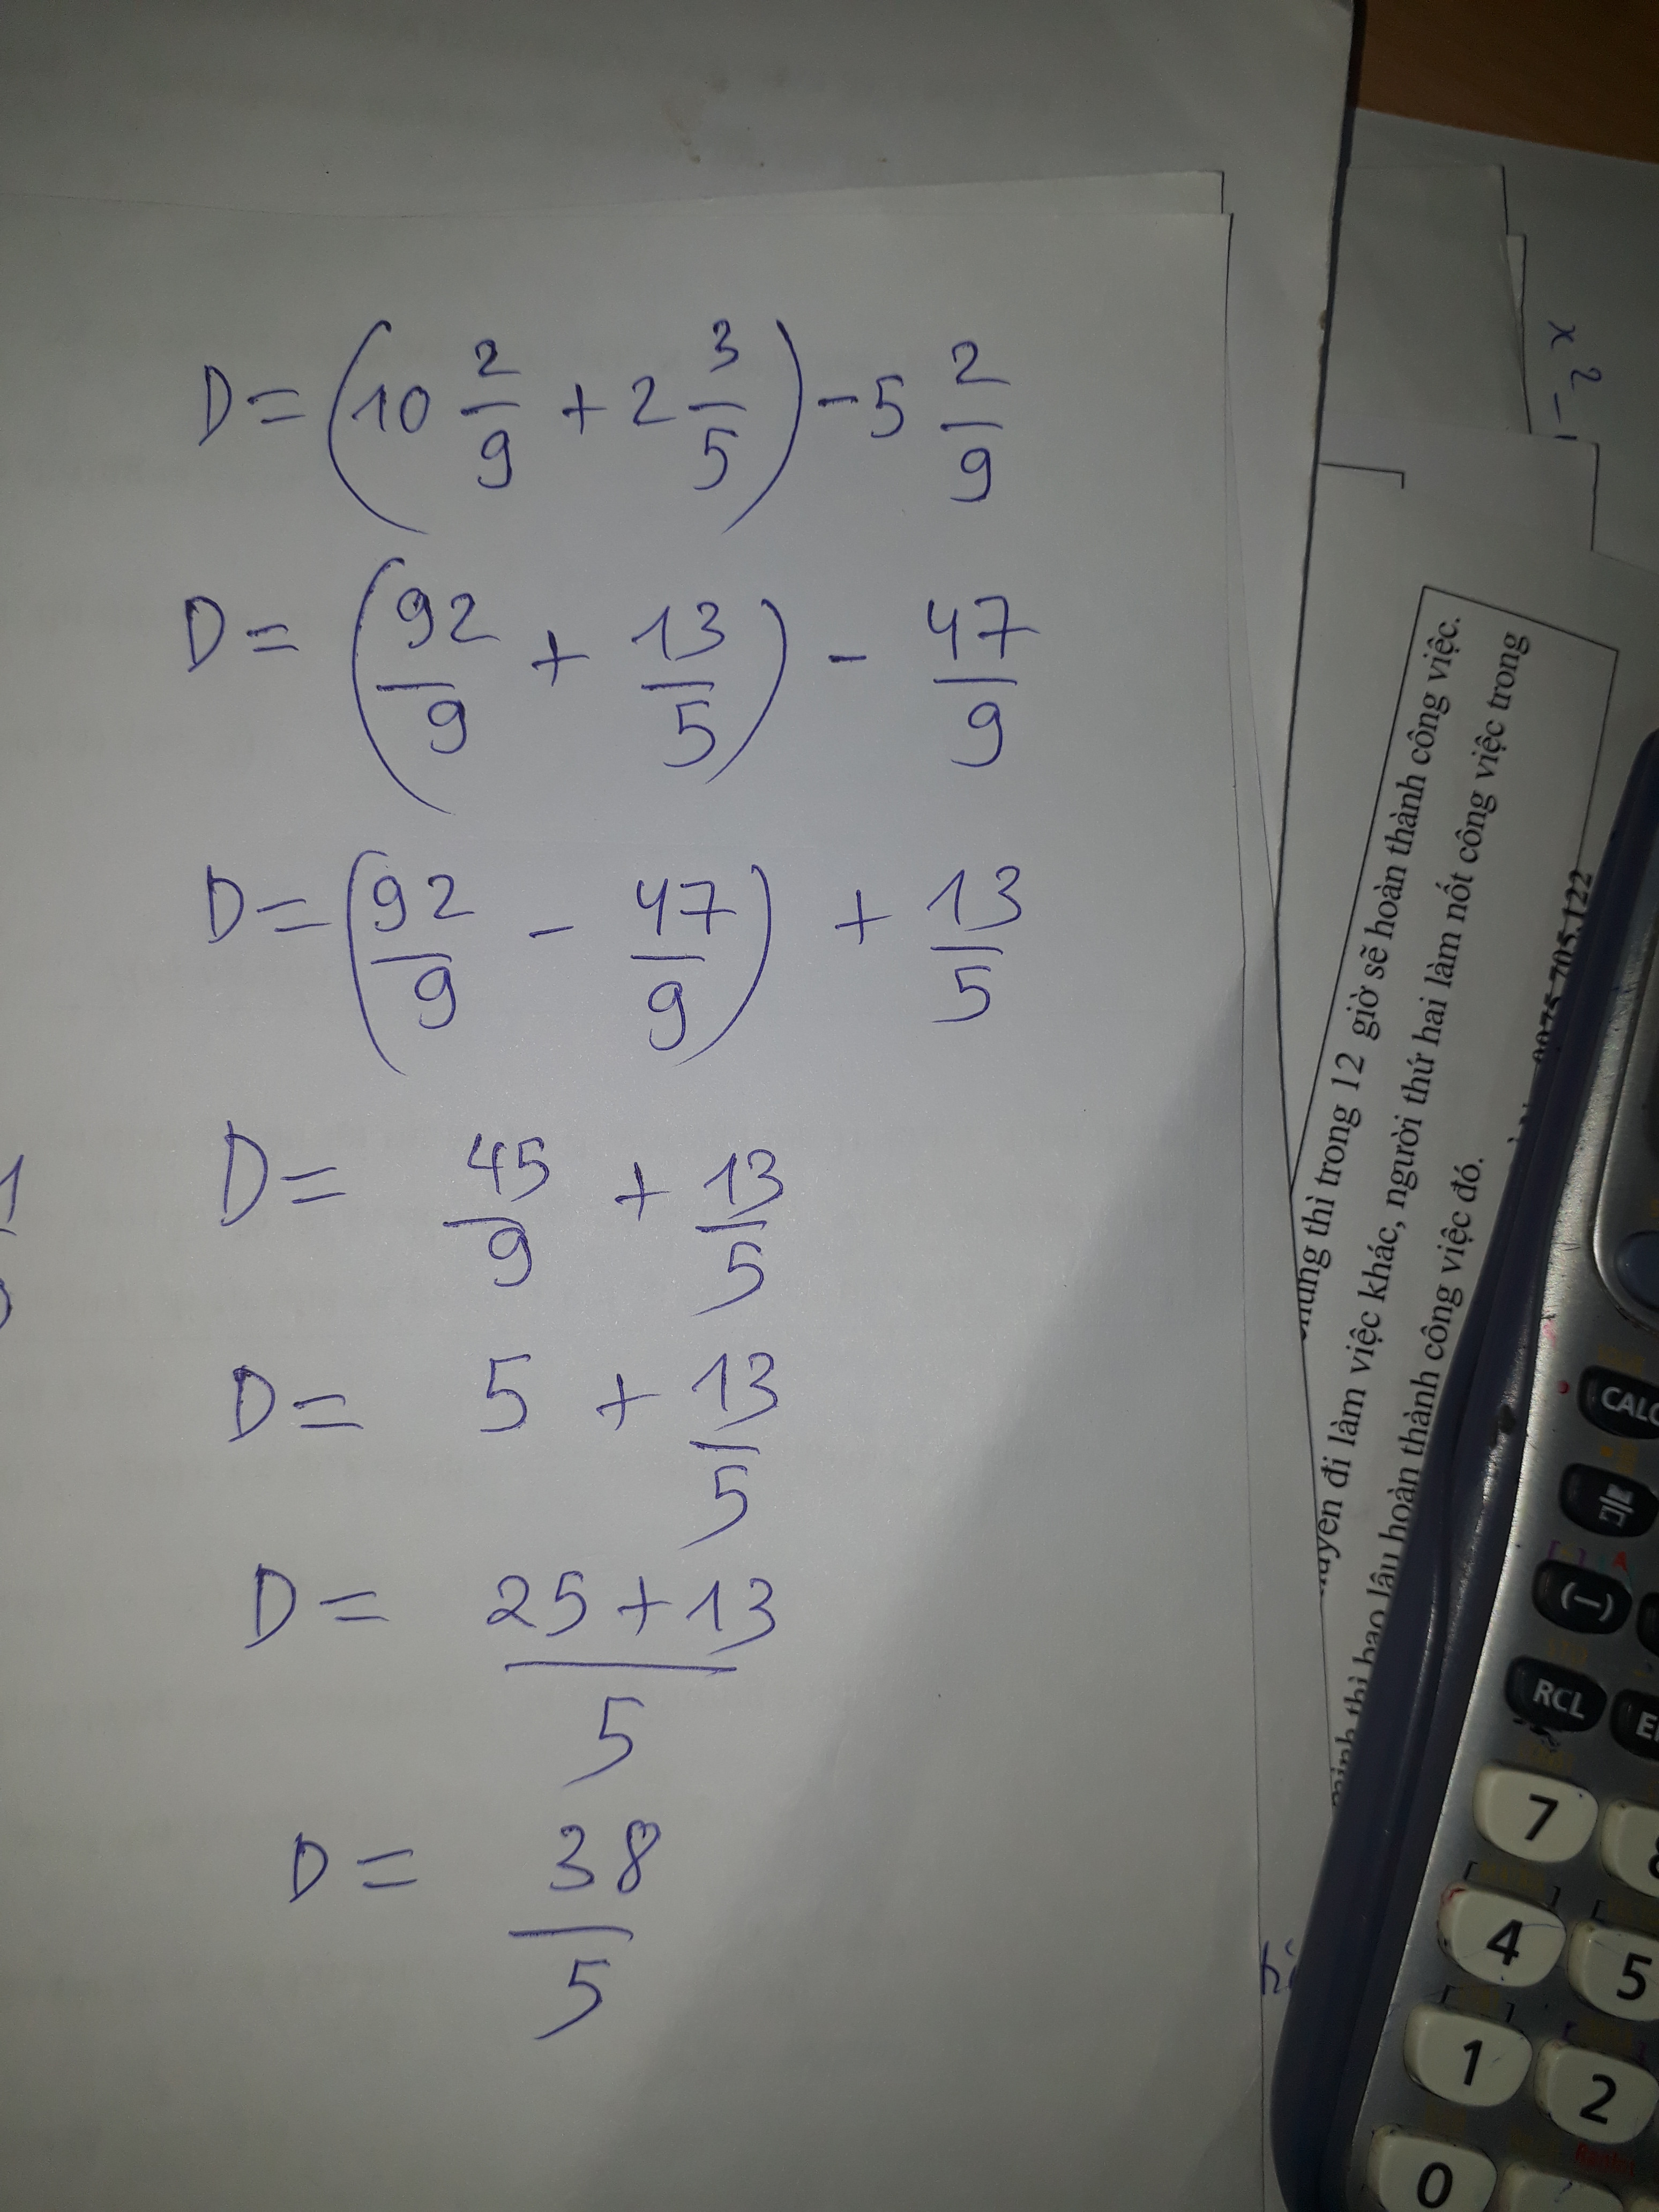 D = (10 2/9 + 2 3/5) - 5 2/9
D = (92/9 + 13/5) - 47/9
D = (92/9 - 47/9) + 13/5
D = 45/9 + 13/5
D = 5 + 13/5
D = (25 + 13)/5
D = 38/5
x² -
thì trong 12 giờ sẽ hoàn thành công việc.
đi làm việc khác, người thứ hai làm nốt công việc trong
thì bao lâu hoàn thành công việc đó.
705.122
CALC
(−)
RCL
7
4 5
1 2
0